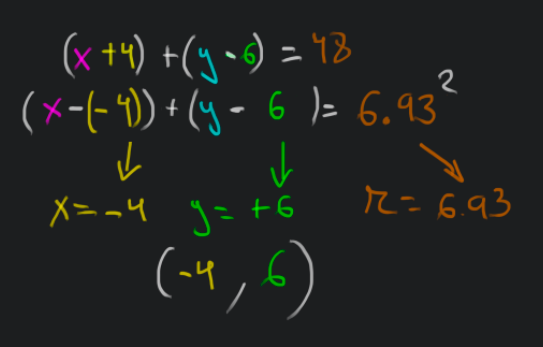 (x+4)+(y-6)=48
(x-(-4))+(y-6)=6.93²
x=-4 y=+6 r=6.93
(-4,6)